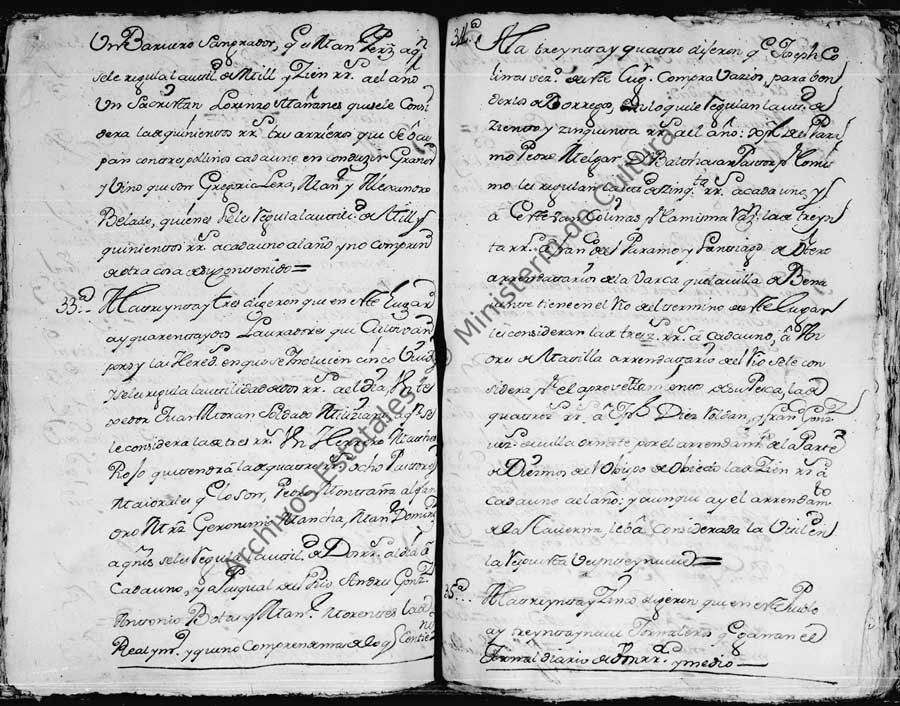 Un Barvero Sangrador, q es Man.l Perz aq.n
se le regula la utili.d de Mill y Zien rr.s al año
Un Sacristan Lorenzo Mañanes que se le Consi
dera la de quinientos rr.s tres arrieros que se ocu
pan con tres pollinos cada uno en conduzir Granos
y Vino que son Gregorio Lera, Man.l y Alexandro
Belado, quienes se les regula la utili.d de Mill y
quinientos rr.s a cada uno al año y no comprend
de otra cosa de su Contenido=
33.a A la treynta y tres dijeron que en este Lugar
ay quarenta y dos Lavradores que Cultivan
por si las Hered.s en que se Incluien cinco
y se les regula la utilidad de dos rr.s al dia Un te
xedor Juan Moran Soldado Miliziano q.n se
le considera la de tres rr.s Un Herrero Matheo
Roso que tendra la de quatro rr.s ocho Pastores
Maiorales q lo son, Pedro Montaña
Mrz Geronimo Mancha, Man.l Doming
a q.nes se les Regula la utili.d de Dos rr.s al dia a
Cada uno, y a Pasqual del Rio Andres Gonz.
Antonio Botas y Man.l Morentes la de
Real y m.o y que no Comprenden mas de lo q.e Contie
34.a A la treynta y quatro dijeron q.e Joseph Co
linas vez.o de este Lug.r Compra Varios, para ben
derlos de Borregos, en lo que le regulan la uti.d de
ziento y zinquenta rr.s al año: a del Para
mo Pedro Melgar, D. Balthasar Pastor y
mo les regulan la de Zinq.ta rr.s a cada uno, y
a Estevan Colinas p.r la misma Raz. la de treyn
ta rr.s a Juan del Paramo y Santiago de Otero
arrendatarios de la Varca que la villa de Bena
vente tiene en el Rio del termino de este Lugar
les consideran la de trescz. rr.s a cada uno, a
de Matilla arrendatario del Rio se le con
sidera p.r el aprovechamiento de su Pesca, la de
quatroz.s rr.s a Diez Roldan, y fran.co Gonz.
vez.s de villa ornate por el arrendam.to de la Parte
de Diezmos del Obispo de Obiedo la de Zien rr.s a
cada uno al año: y aunque ay el arrendam.to
de la Taverna, le ba Considerada la Utili.d en
la respuesta veynte y nueve=
35.a A la treynta y Zinco dijeron que en este Pueblo
ay treynta y nueve Jornaleros q.e ganan el
Jornal diario de Un rr. y medio
Archivos Estatales © Ministerio de Cultura